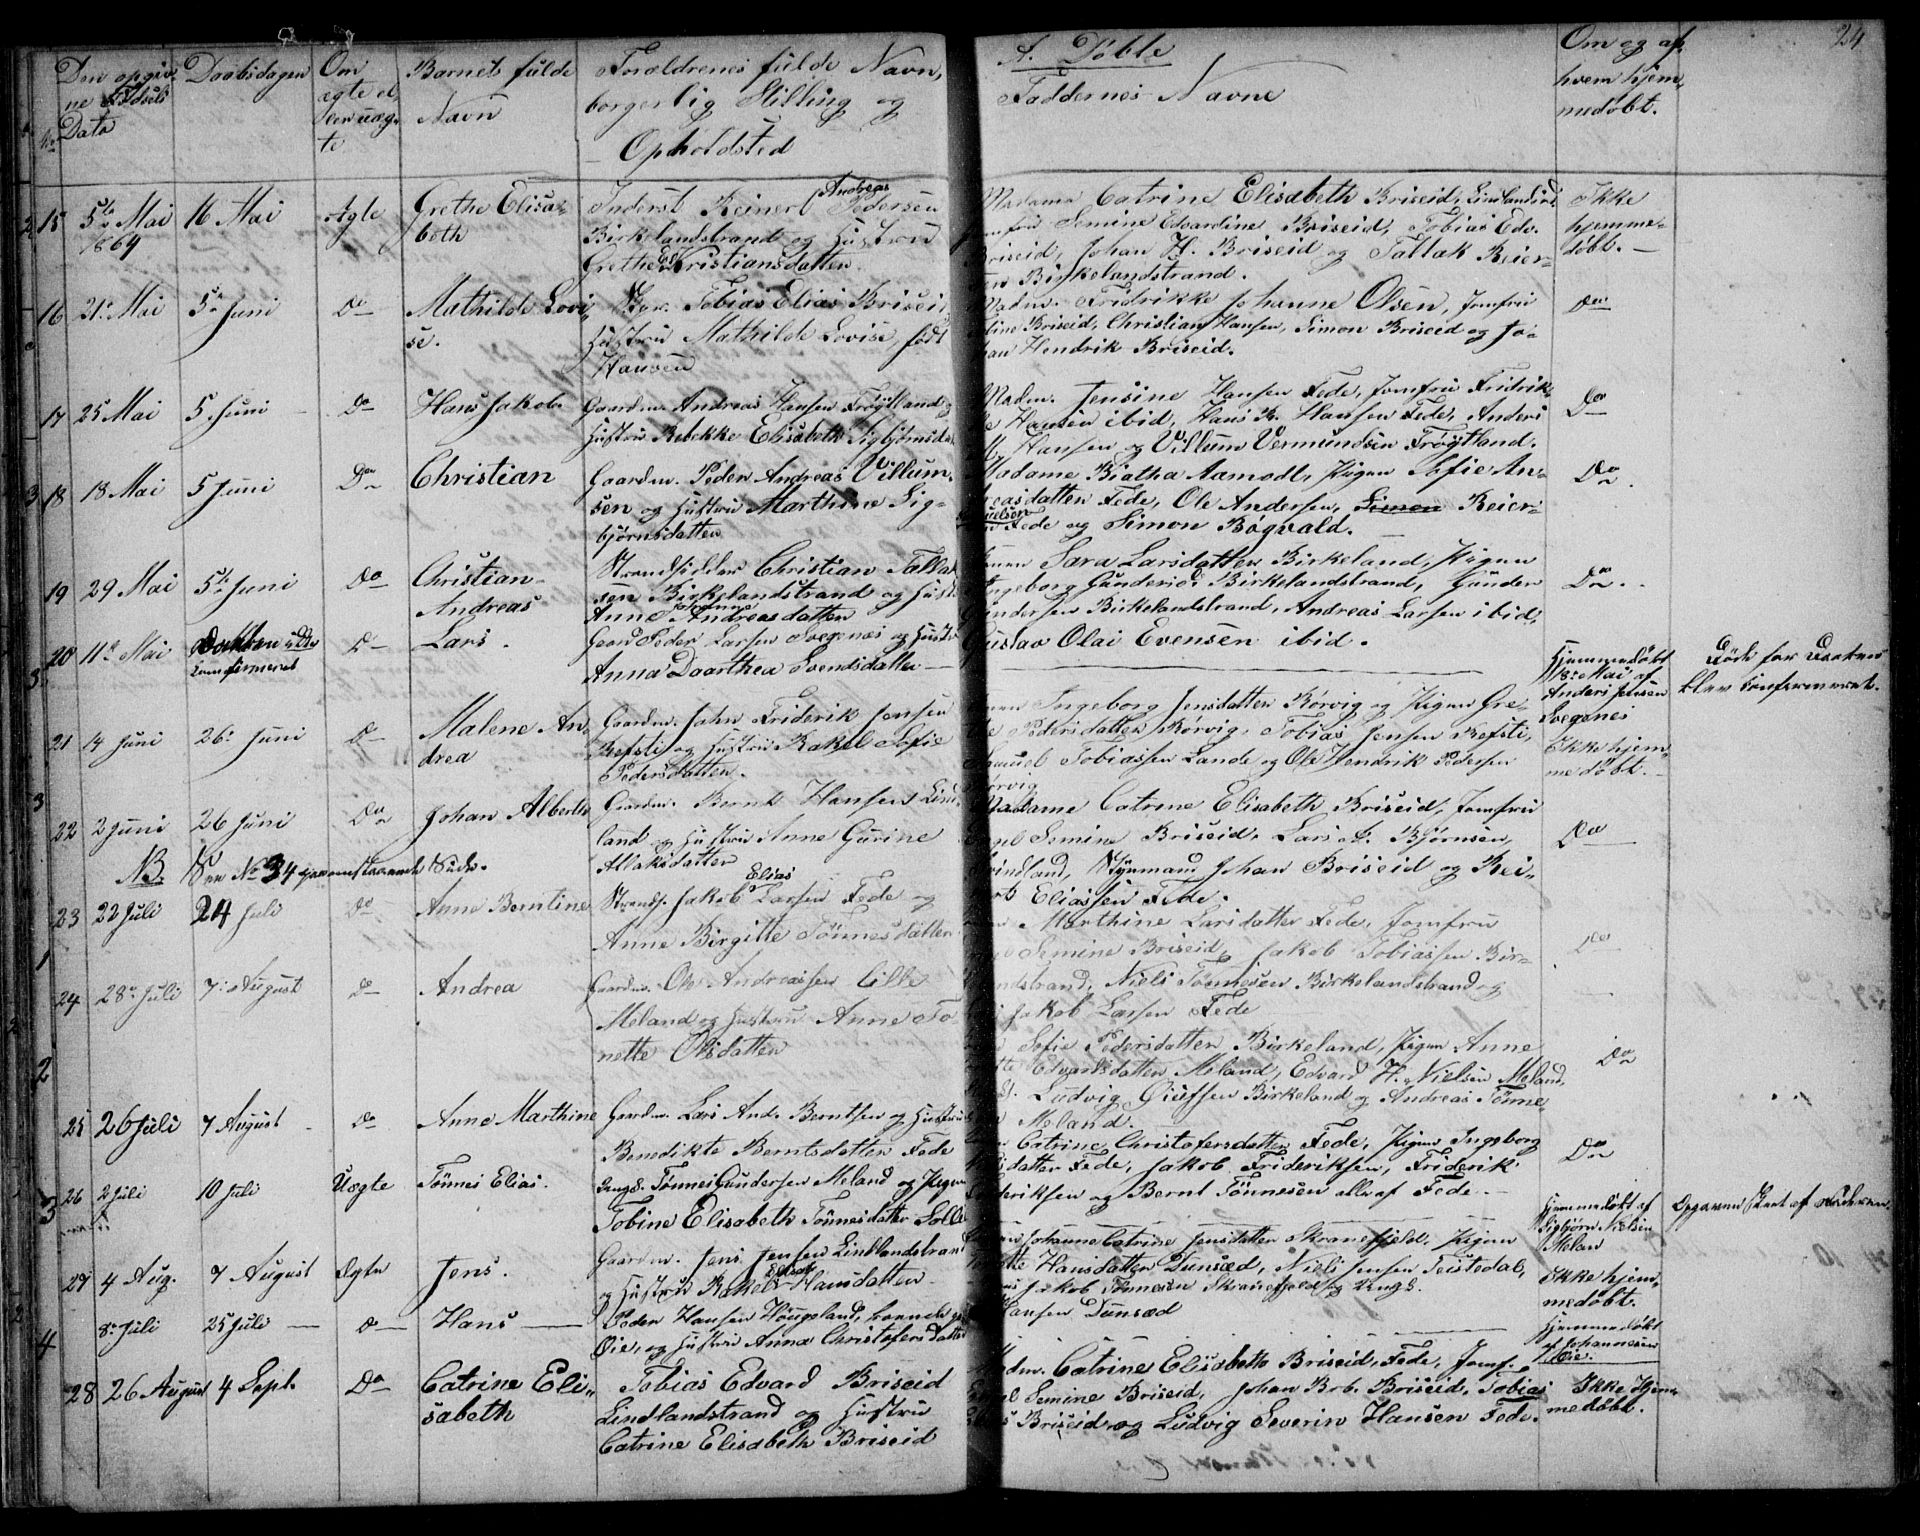 24
A. Døbte
No
Den opgiv-
ne Fødsels
Dato
Daabsdagen
Om
ægte el-
ler uæg-
te
Barnets fulde
Navn
Forældrenes fulde Navn,
borgerlig Stilling og
Opholdsted
Faddernes Navne
Om og af
hvem hjem-
medøbt.
15 5te Mai 1864 16 Mai Ægte Grethe Elisa-
beth
Inderst Reinert Andreas Pedersen
Birkelandstrand og Hustru
Grethe Kristiansdatter.
Madame Catrine Elisabeth Briseid, Lindlandstrd
Semine Edvardine Briseid, Tobias Edv.
Briseid, Johan H. Briseid og Tallak Reier-
Birkelandstrand.
Ikke
hjemme-
døbt.
16 21de Mai 5te Juni Do Mathilde Lovi-
se.
Tobias Elias Briseid
Hustru Mathilde Lovise født
Hansen
Madm. Fridrikke Johanne Olsen, Jomfru
Briseid, Christian Hansen, Simon Briseid og Jo-
han Hendrik Briseid.
Do
17 25 Mai 5 Juni Do Hans Jakob.
Gaardm. Andreas Hansen Frøytland
Hustru Rebekke Elisabeth
Madm. Jensine Hansen Fede, Jomfru Fridrik-
ke Hansen ibid, Hans R. Hansen Fede, Anders
M. Hansen og Villum Vermundsen Frøytland.
Do
18 18 Mai 5 Juni Do Christian
Gaardm. Peder Andreas Villum-
sen og Hustru Marthine Sig-
bjørnsdatter
Madame Biatha Aamodt, Pigen Sofie An-
dreasdatter Fede, Ole Andersen, Simon Reier-
Fede og Simon Bøgvald.
Do
19 29 Mai 5te Juni Do Christian
Andreas
Strandsidder Christian Tallak-
sen Birkelandstrand og Hustr
Anne Johanne Andreasdatter
Sara Larsdatter Birkeland, Pigen
Ingeborg Gundersd. Birkelandstrand, Gunder
Gundersen Birkelandstrand, Andreas Larsen ibid,
Gustav Olai Evensen ibid.
Do
20 11te Mai Daaben
Lars.
Peder Larsen Svegenæs og Hustru
Anna Daarthea Svendsdatter
Hjemmedøbt
18de Mai af
Anders Jensen
Svegenes
Døde før Daaben
blev konfermeret.
21 14 Juni 26de Juni Do Malene An-
drea
Gaardm. Jahn Friderik Jensen
Refsti og Hustru Rakel Sofie
Pedersdatter.
Ingeborg Jensdatter Rørvig og Pigen Gre-
Pedersdatter Rørvig, Tobias Jensen Refsti,
Samuel Tobiassen Lande og Ole Hendrik Pedersen
Rørvig
Ikke hjem-
medøbt.
22 2 Juni 26 Juni Do Johan Albert
Gaardm. Bernt Hansen Lind-
land og Hustru Anne Gurine
Atlaksdatter
Madame Catrine Elisabeth Briseid, Jomfru
Semine Briseid, Lars A. Bjørnsen
Lindland, Styrmand Johan Briseid og Rei-
Eliassen Fede.
Do
NB. See No 34 gjenstaaende Side.
23 22 Juli 24 Juli Do Anne Berntine
Strands. Jakob Elias Larsen Fede og
Anne Birgitte Tønnesdatter
Marthine Larsdatter Fede, Jomfru
Semine Briseid, Jakob Tobiassen Bir-
kelandstrand, Niels Tønnesen Birkelandstrand og
Jakob Larsen Fede
Do
24 28de Juli 7de August Do Andrea
Gaardm. Ole Andreassen Lille
Meland og Hustru Anne To-
nette Olsdatter
Sofie Pedersdatter Birkeland, Pigen Anne
Edvardsdatter Meland, Edvard H. Nielsen Meland,
Ludvig Birkeland og Andreas Tønne-
Meland.
Do
25 26 Juli 7 August Do Anne Marthine
Gaardm. Lars And. Berntsen og Hustru
Benedikte Berntsdatter Fede
Catrine Christofersdatter Fede, Pigen Ingeborg
datter Fede, Jakob Frideriksen, Friderik
Frideriksen og Bernt Tønnesen alle af Fede.
Do
26 2 Juli 10 Juli Uægte Tønnes Elias.
Ungk. Tønnes Gundersen Meland og Pigen
Tobine Elisabeth Tønnesdatter
Hjemmedøbt af
Sigbjørn Nielsen
Melan
Opgaven skeet af Faderen
27 4 Aug. 7 August Ægte Jens.
Gaardm. Jens Jensen Lindlandstrand
og Hustru Rakel Hansdatter
Johanne Catrine Jensdatter Skranefjeld, Pigen
Hansdatter Dunsæd, Niels Jensen Teistedal,
Jakob Tønnesen Skranefjeld og Ungk.
Hansen Dunsæd
Ikke hjem-
medøbt.
8de Juli 25 Juli Do Hans
Peder Hansen Høugeland, boende
Øie, og Hustru Anna Christofersdatter
Hjemmedøbt
af Johannesen
Øie.
28 26 August 4 Sept. Do Catrine Eli-
sabeth
Tobias Edvard Briseid
Lindlandstrand og Hustru
Catrine Elisabeth Briseid
Madm. Catrine Elisabeth Briseid, Fede, Jomf.
Semine Briseid, Johan Brb. Briseid, Tobias
Briseid og Ludvig Severin Hansen Fede.
Ikke Hjem-
medøbt.